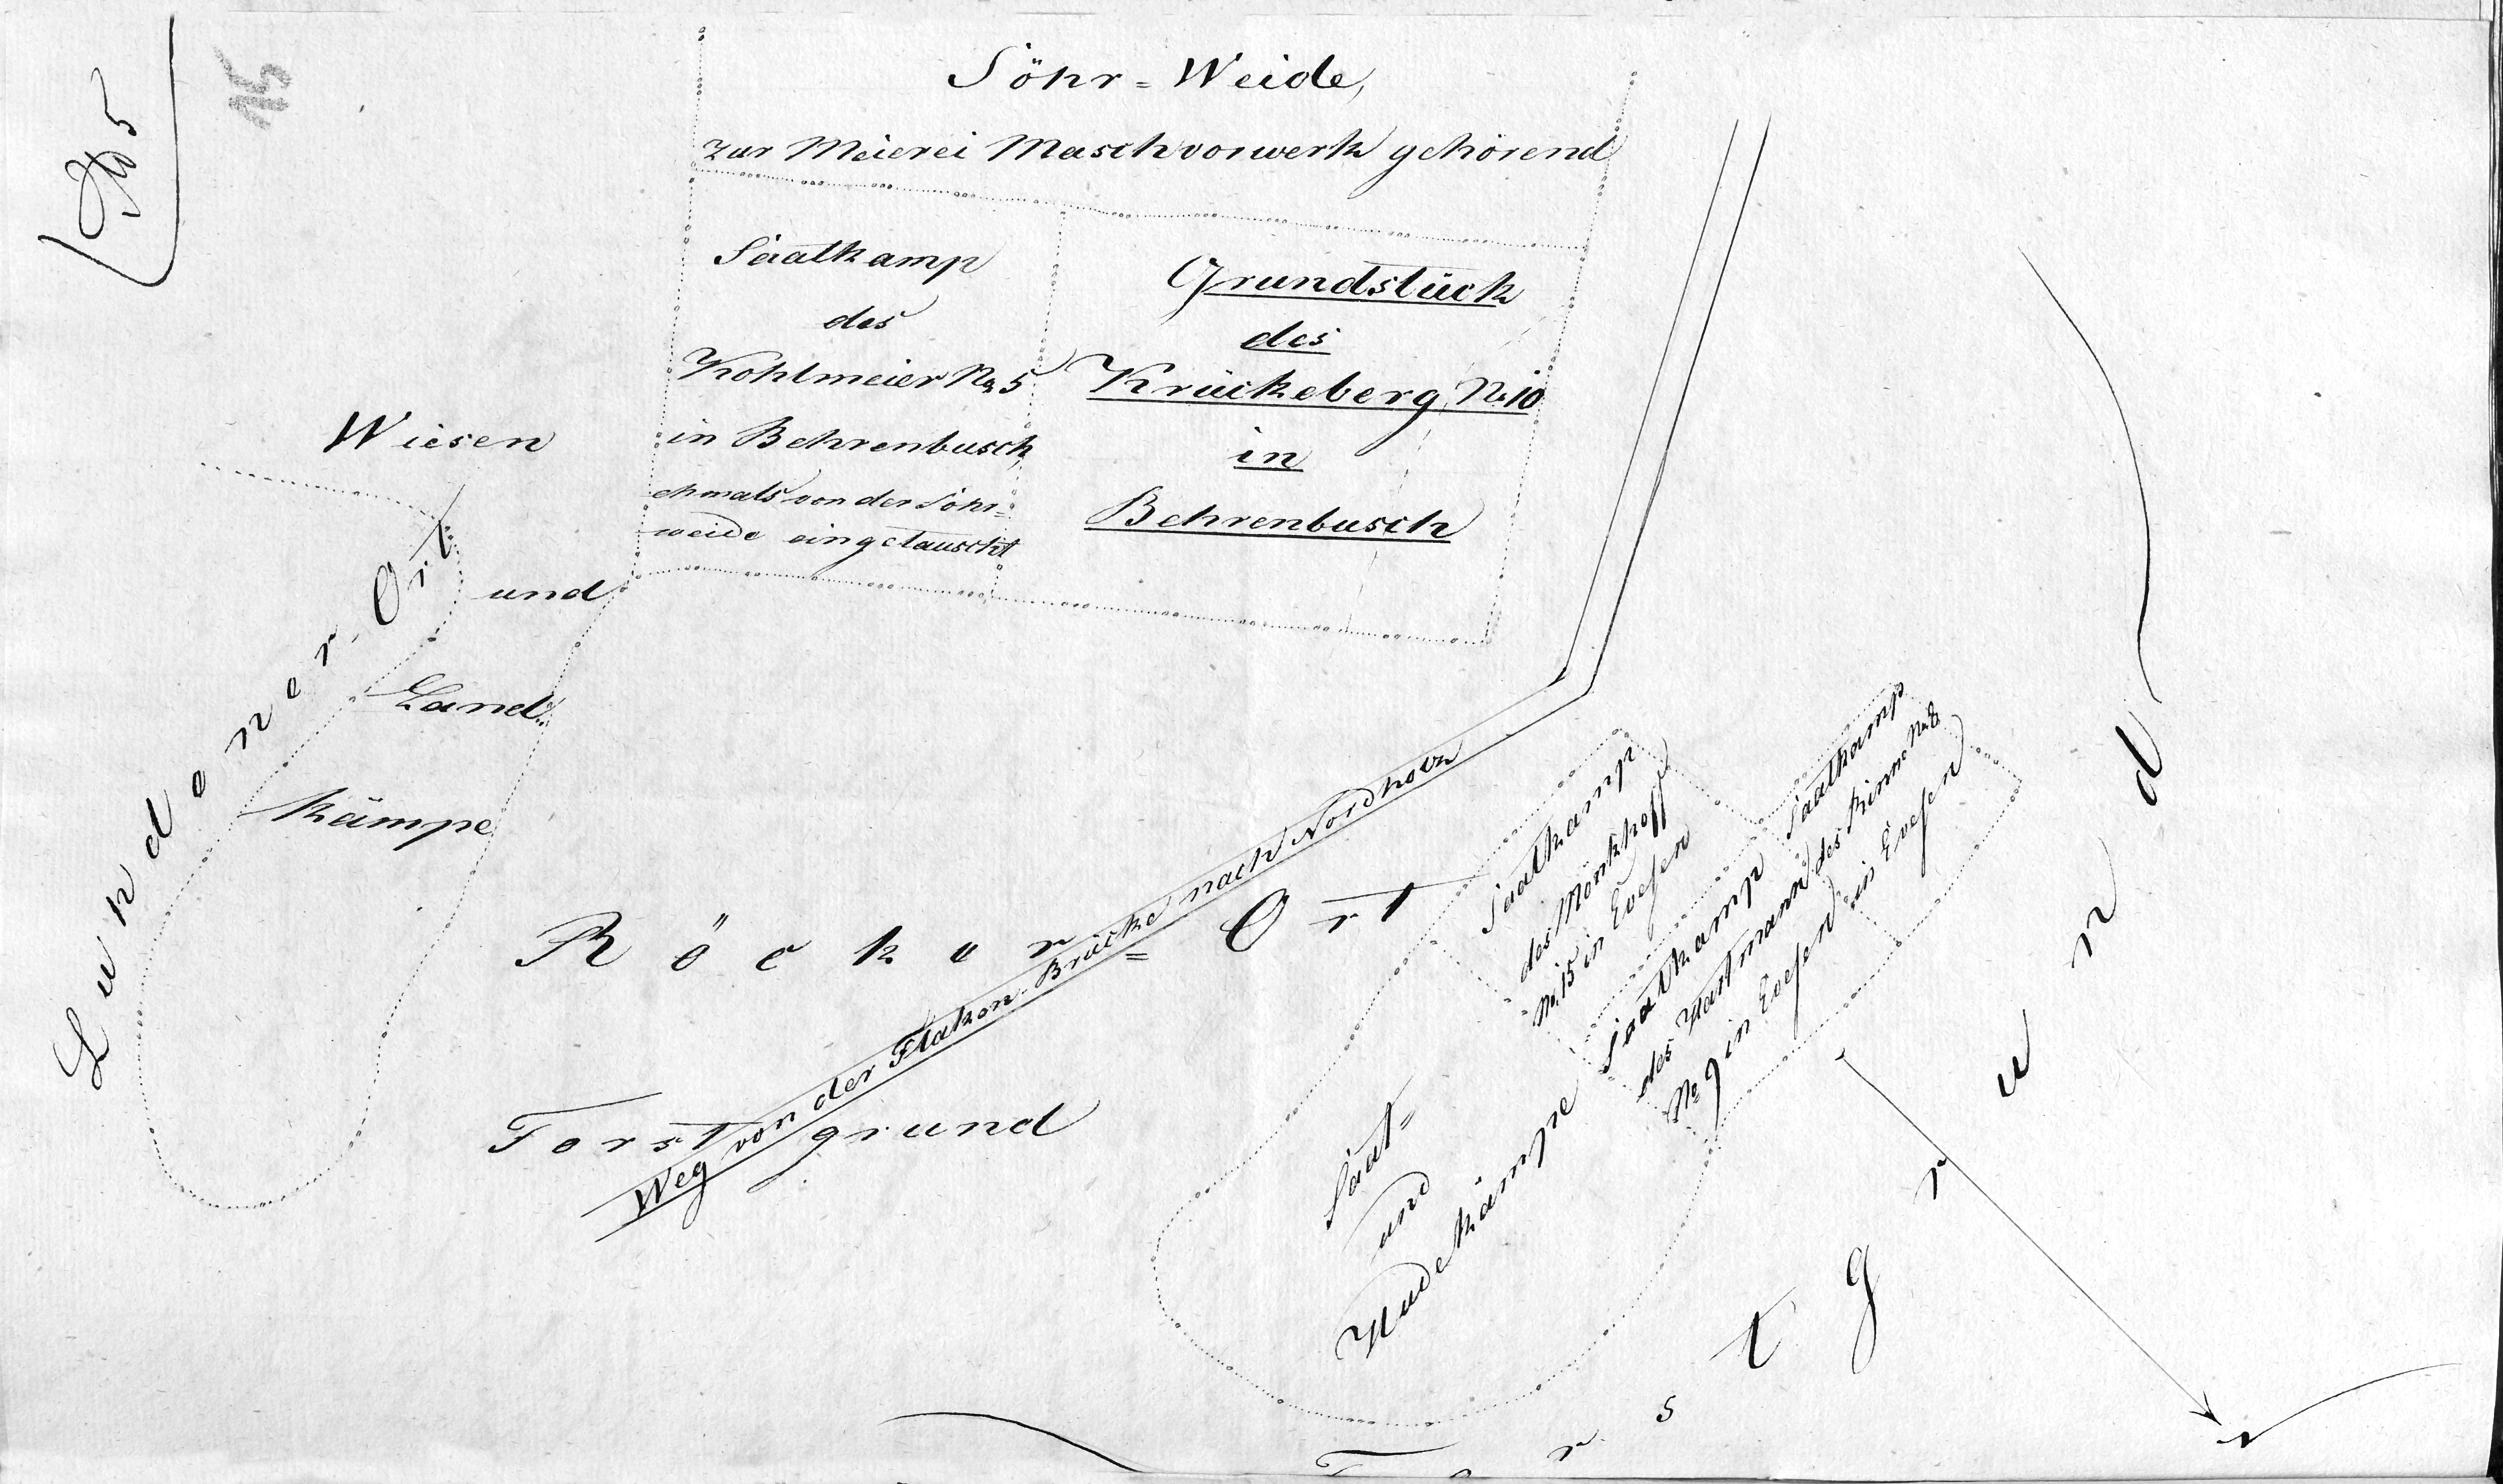 15
Söhr=Weide,
zur Meierei Maschvorwerk gehörend
Saatkamp
des
Kohlmeier No 5
in Behrenbusch,
ehmals von der Söhr=
weide eingetauscht
Grundstück
des
Krückeberg, No 10
in
Behrenbusch
Wiesen
und
Land=
kämpe
Lundener-Ort
Röcker=Ort
Forstgrund
Weg von der Flaken-Brücke nach Nordholz
Saatkamp
des Mönkhoff
No. 15 in Evesen
Saatkamp
des Hartmann
No 9 in Evesen
Saatkamp
des Rinne
in Evesen
Saat=
und
Hudekämpe
Forstgrund